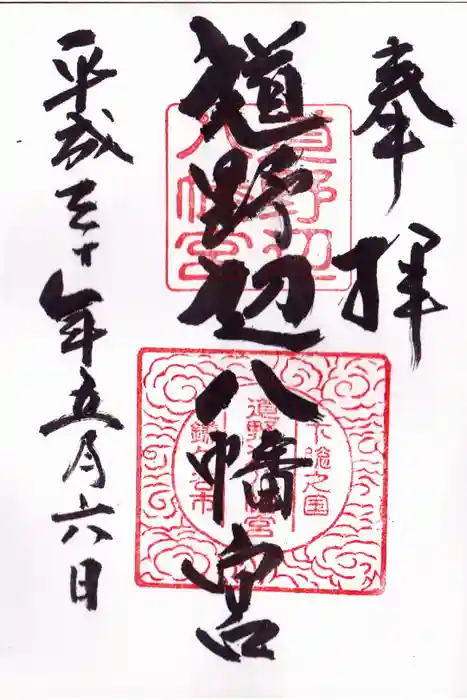 奉拝
道野辺八幡宮
平成三十年五月六日
道野辺
八幡宮
下総之国
道野辺八幡宮
鎌ケ谷市